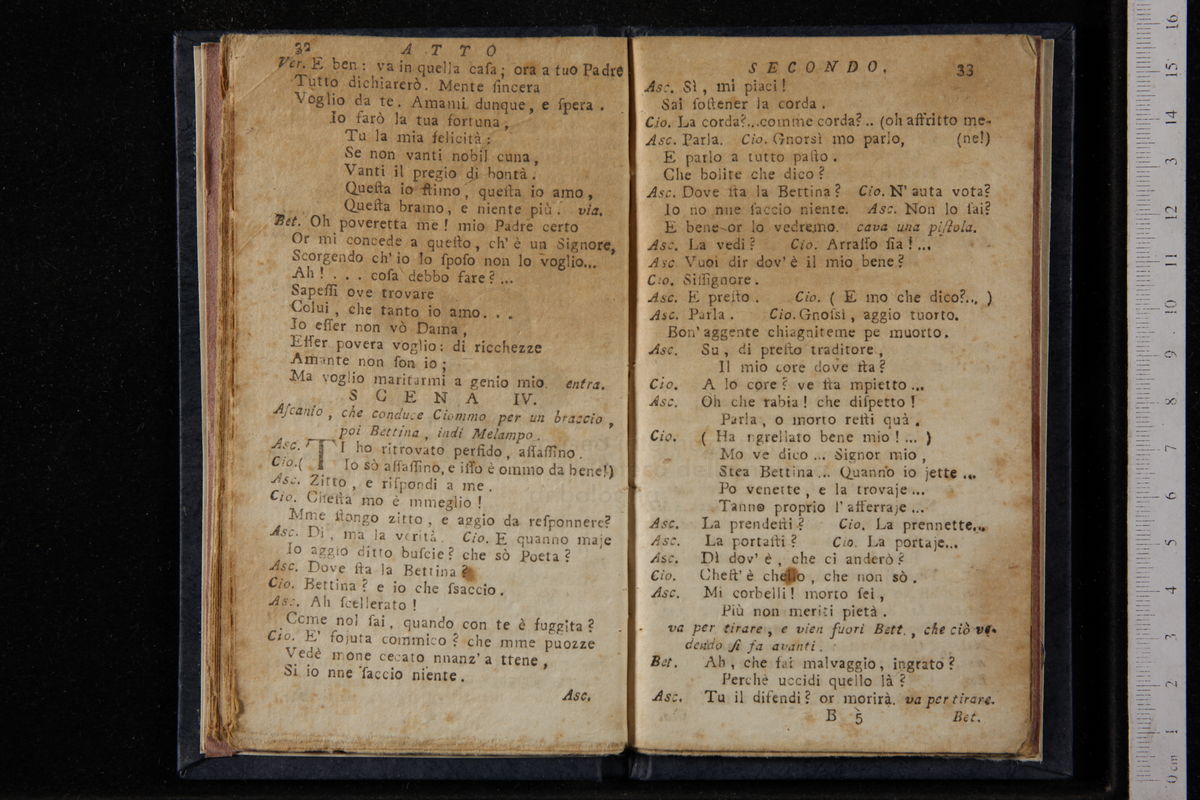 32 ATTO
Ver. E ben: va in quella caſa; ora a tuo Padre
Tutto dichiarerò. Mente ſincera
Voglio da te. Amami dunque, e ſpera.
Io farò la tua fortuna,
Tu la mia felicità:
Se non vanti nobil cuna,
Vanti il pregio di bontà.
Queſta io ſtimo, queſta io amo,
Queſta bramo, e niente più. via.
Bet. Oh poveretta me! mio Padre certo
Or mi concede a queſto, ch'è un Signore,
Scorgendo ch'io lo ſpoſo non lo voglio...
Ah! . . . coſa debbo fare? ...
Sapeſſi ove trovare
Colui, che tanto io amo. . .
Io eſſer non vò Dama,
Eſſer povera voglio: di ricchezze
Amante non ſon io;
Ma voglio maritarmi a genio mio. entra.
SCENA IV.
Aſcanio, che conduce Ciommo per un braccio,
poi Bettina, indi Melampo.
Asc. TI ho ritrovato perfido, aſſaſſino.
Cio. ( Io sò aſſaſſino, e iſſo è ommo da bene!)
Asc. Zitto, e riſpondi a me.
Cio. Cheſta mo è mmeglio!
Mme ſtongo zitto, e aggio da reſponnere?
Asc. Dì, ma la verità. Cio. E quanno maje
Io aggio ditto buſcie? che sò Poeta?
Asc. Dove ſta la Bettina?
Cio. Bettina? e io che ſsaccio.
Asc. Ah ſcellerato!
Come nol ſai, quando con te è fuggita?
Cio. E' fojuta commico? che mme puozze
Vedè mone cecato nnanz'a ttene,
Si io nne ſaccio niente.
Asc.
SECONDO. 33
Asc. Sì, mi piaci!
Sai ſoſtener la corda.
Cio. La corda?...comme corda?.. (oh affritto me-
Asc. Parla. Cio. Gnorsì mo parlo, (ne!)
E parlo a tutto paſto.
Che bolite che dico?
Asc. Dove ſta la Bettina? Cio. N'auta vota?
Io no nne ſaccio niente. Asc. Non lo ſai?
E bene or lo vedremo. cava una piſtola.
Asc. La vedi? Cio. Arraſſo ſia! ...
Asc. Vuoi dir dov'è il mio bene?
Cio. Siſſignore.
Asc. E preſto. Cio. ( E mo che dico?... )
Asc. Parla. Cio. Gnoſsì, aggio tuorto.
Bon'aggente chiagniteme pe muorto.
Asc. Su, di preſto traditore,
Il mio core dove ſta?
Cio. A lo core? ve ſta mpietto ...
Asc. Oh che rabia! che diſpetto!
Parla, o morto reſti quà.
Cio. ( Ha ngrellato bene mio! ... )
Mo ve dico ... Signor mio,
Stea Bettina ... Quanno io jette ...
Po venette, e la trovaje ...
Tanno proprio l'afferraje ...
Asc. La prendeſti? Cio. La prennette...
Asc. La portaſti? Cio. La portaje...
Asc. Dì dov'è, che ci anderò?
Cio. Cheſt'è cheſſo, che non sò.
Asc. Mi corbelli! morto ſei,
Più non meriti pietà.
va per tirare, e vien fuori Bett., che ciò ve-
dendo ſi fa avanti.
Bet. Ah, che fai malvaggio, ingrato?
Perchè uccidi quello là?
Asc. Tu il difendi? or morirà. va per tirare.
B 5 Bet.
0 cm 1 2 3 4 5 6 7 8 9 10 11 12 13 14 15 16